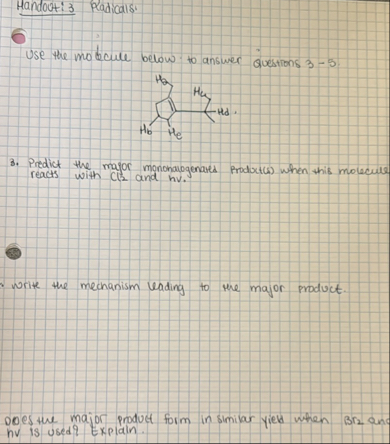 Handout: 3 Radicals:
Use the molecule below to answer questions 3-5.
Ha
Hc
Hd.
Hb
He
3. Predict the major monohalogenated product(s) when this molecule
reacts with Cl2 and hv.
Write the mechanism leading to the major product.
Does the major product form in similar yield when Br2 and
hv is used? Explain.